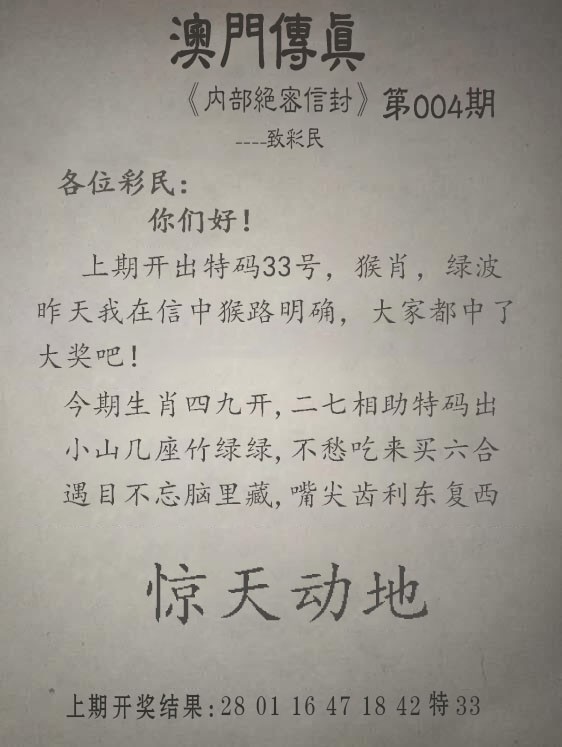 澳門傳真
《内部絕密信封》第004期
----致彩民
各位彩民：
你们好！
上期开出特码33号，猴肖，绿波
昨天我在信中猴路明确，大家都中了
大奖吧！
今期生肖四九开,二七相助特码出
小山几座竹绿绿,不愁吃来买六合
遇目不忘脑里藏,嘴尖齿利东复西
惊天动地
上期开奖结果:28 01 16 47 18 42 特 33